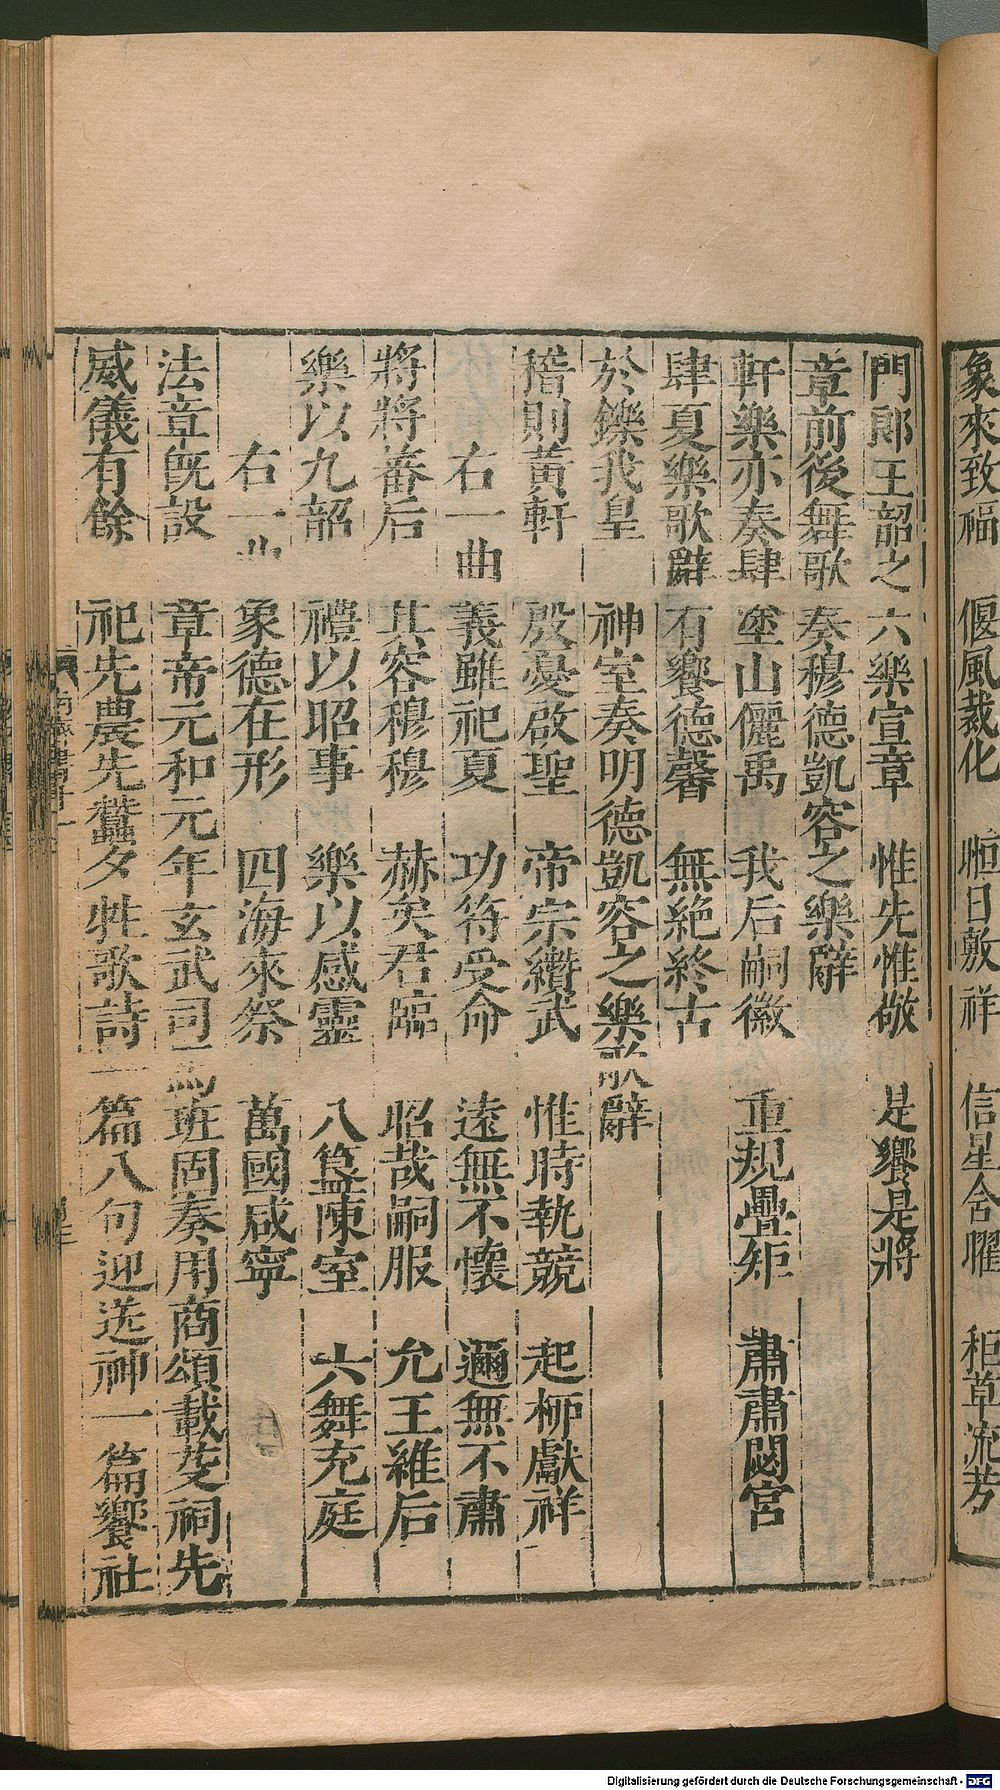 象來致福 偃風裁化 暅日敷祥 信星含曜 秬草流芳
門郎王韶之 六樂宣章 惟先惟敬 是饗是將
章前後舞歌 奏穆德凱容之樂辭
軒樂亦奏肆 塗山儷禹 我后嗣徽 重規疊矩 肅肅閟宮
肆夏樂歌辭 有饗德馨 無絕終古
於鑠我皇 神室奏明德凱容之樂歌辭
稽則黃軒 殷憂啟聖 帝宗纘武 惟時執競 起柳獻祥
右一曲 義雖祀夏 功符受命 遠無不懷 邇無不肅
將將蕃后 其容穆穆 赫矣君臨 昭哉嗣服 允王維后
樂以九韶 禮以昭事 樂以感靈 八簋陳室 六舞充庭
右一曲 象德在形 四海來祭 萬國咸寧
法章旣設 章帝元和元年玄武司馬班固奏用商頌載芟祠先
威儀有餘 祀先農先蠶夕牲歌詩一篇八句迎送神一篇饗社
Digitalisierung gefördert durch die Deutsche Forschungsgemeinschaft - DFG